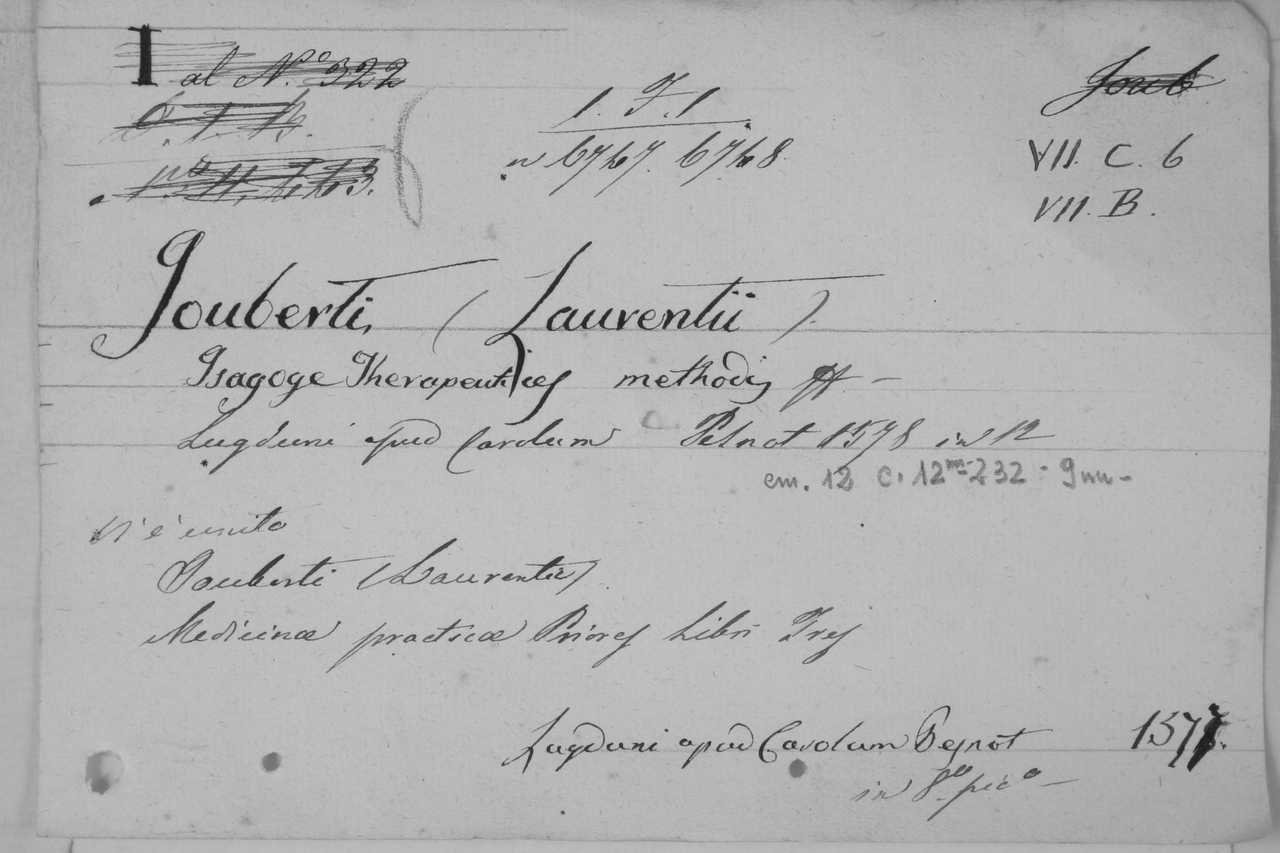 I al N.º 322
1. F. 1
Joub
n 6747. 6748.
VII. C. 6
VII. B.
Jouberti, (Laurentii).
Isagoge Therapeutices methodi, ff —
Lugduni apud Carolum Pesnot 1578 in 12
cm. 12 c. 12 m-232 - 9nn-
Vi è unito
Jouberti (Laurentii)
Medicinæ practicæ Priores Libri Tres
Lugduni apud Carolum Pesnot 1577.
in 8º picº —